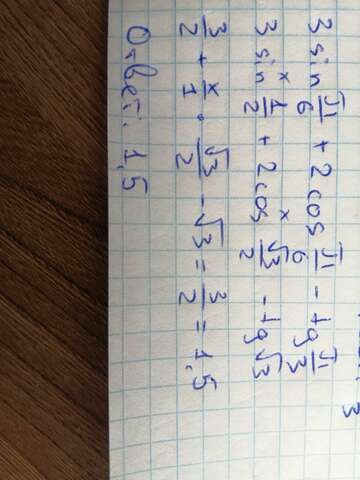 3
3 sin π/6 + 2 cos π/6 - tg π/3
3 sin x 1/2 + 2 cos x √3/2 - tg √3
3/2 + x/1 · √3/2 - √3 = 3/2 = 1,5
Ответ: 1,5